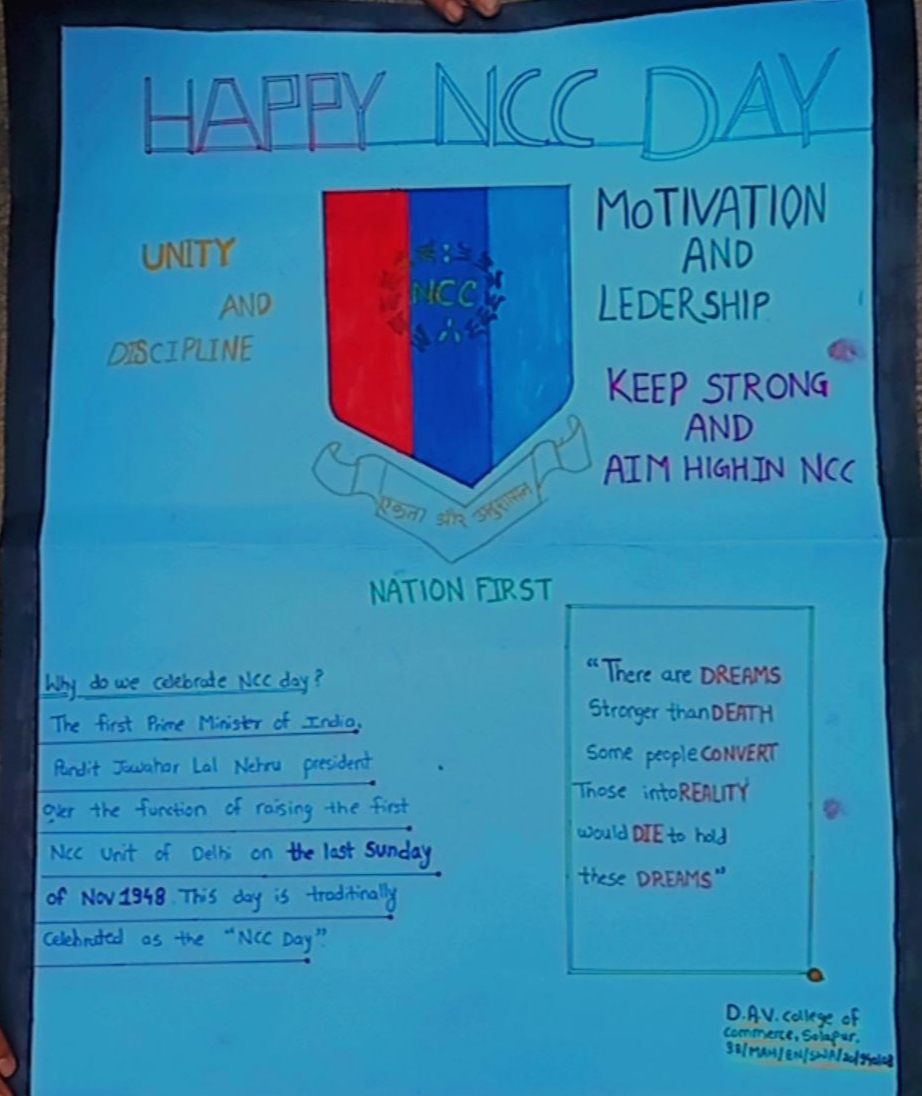 HAPPY NCC DAY
UNITY
AND
DISCIPLINE
NCC
एकता और अनुशासन
MOTIVATION
AND
LEDERSHIP
KEEP STRONG
AND
AIM HIGH IN NCC
NATION FIRST
Why do we celebrate NCC day?
The first Prime Minister of India,
Pandit Jawahar Lal Nehru president
over the function of raising the first
NCC Unit of Delhi on the last Sunday
of Nov 1948. This day is traditinally
Celebrated as the "NCC Day".
"There are DREAMS
Stronger than DEATH
Some people CONVERT
Those into REALITY
would DIE to hold
these DREAMS"
D.A.V. college of
Commerce, Solapur.